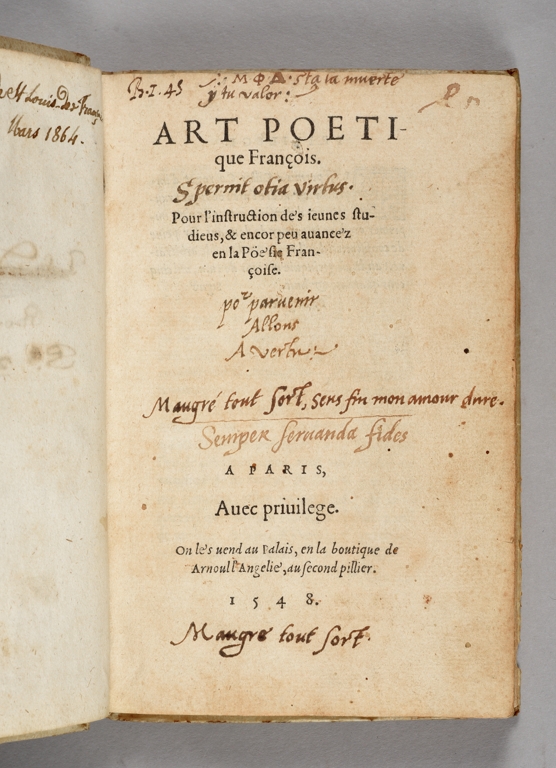 St Louis-Des-Franç
Mars 1864.
B. I. 45
M Φ Δ. sta la muerte
y tu valor:
ART POETI-
que François.
Spernit otia virtus.
Pour l'inſtruction de's ieunes ſtu-
dieus, & encor peu auance'z
en la Pöe'sie Fran-
çoiſe.
por paruenir
Allons
A vertu
Maugré tout sort, sens fin mon amour dure.
Semper seruanda fides
A PARIS,
Auec priuilege.
On le's uend au Palais, en la boutique de
Arnoul l'Angelie', au ſecond pillier.
1 5 4 8.
Maugre tout sort.